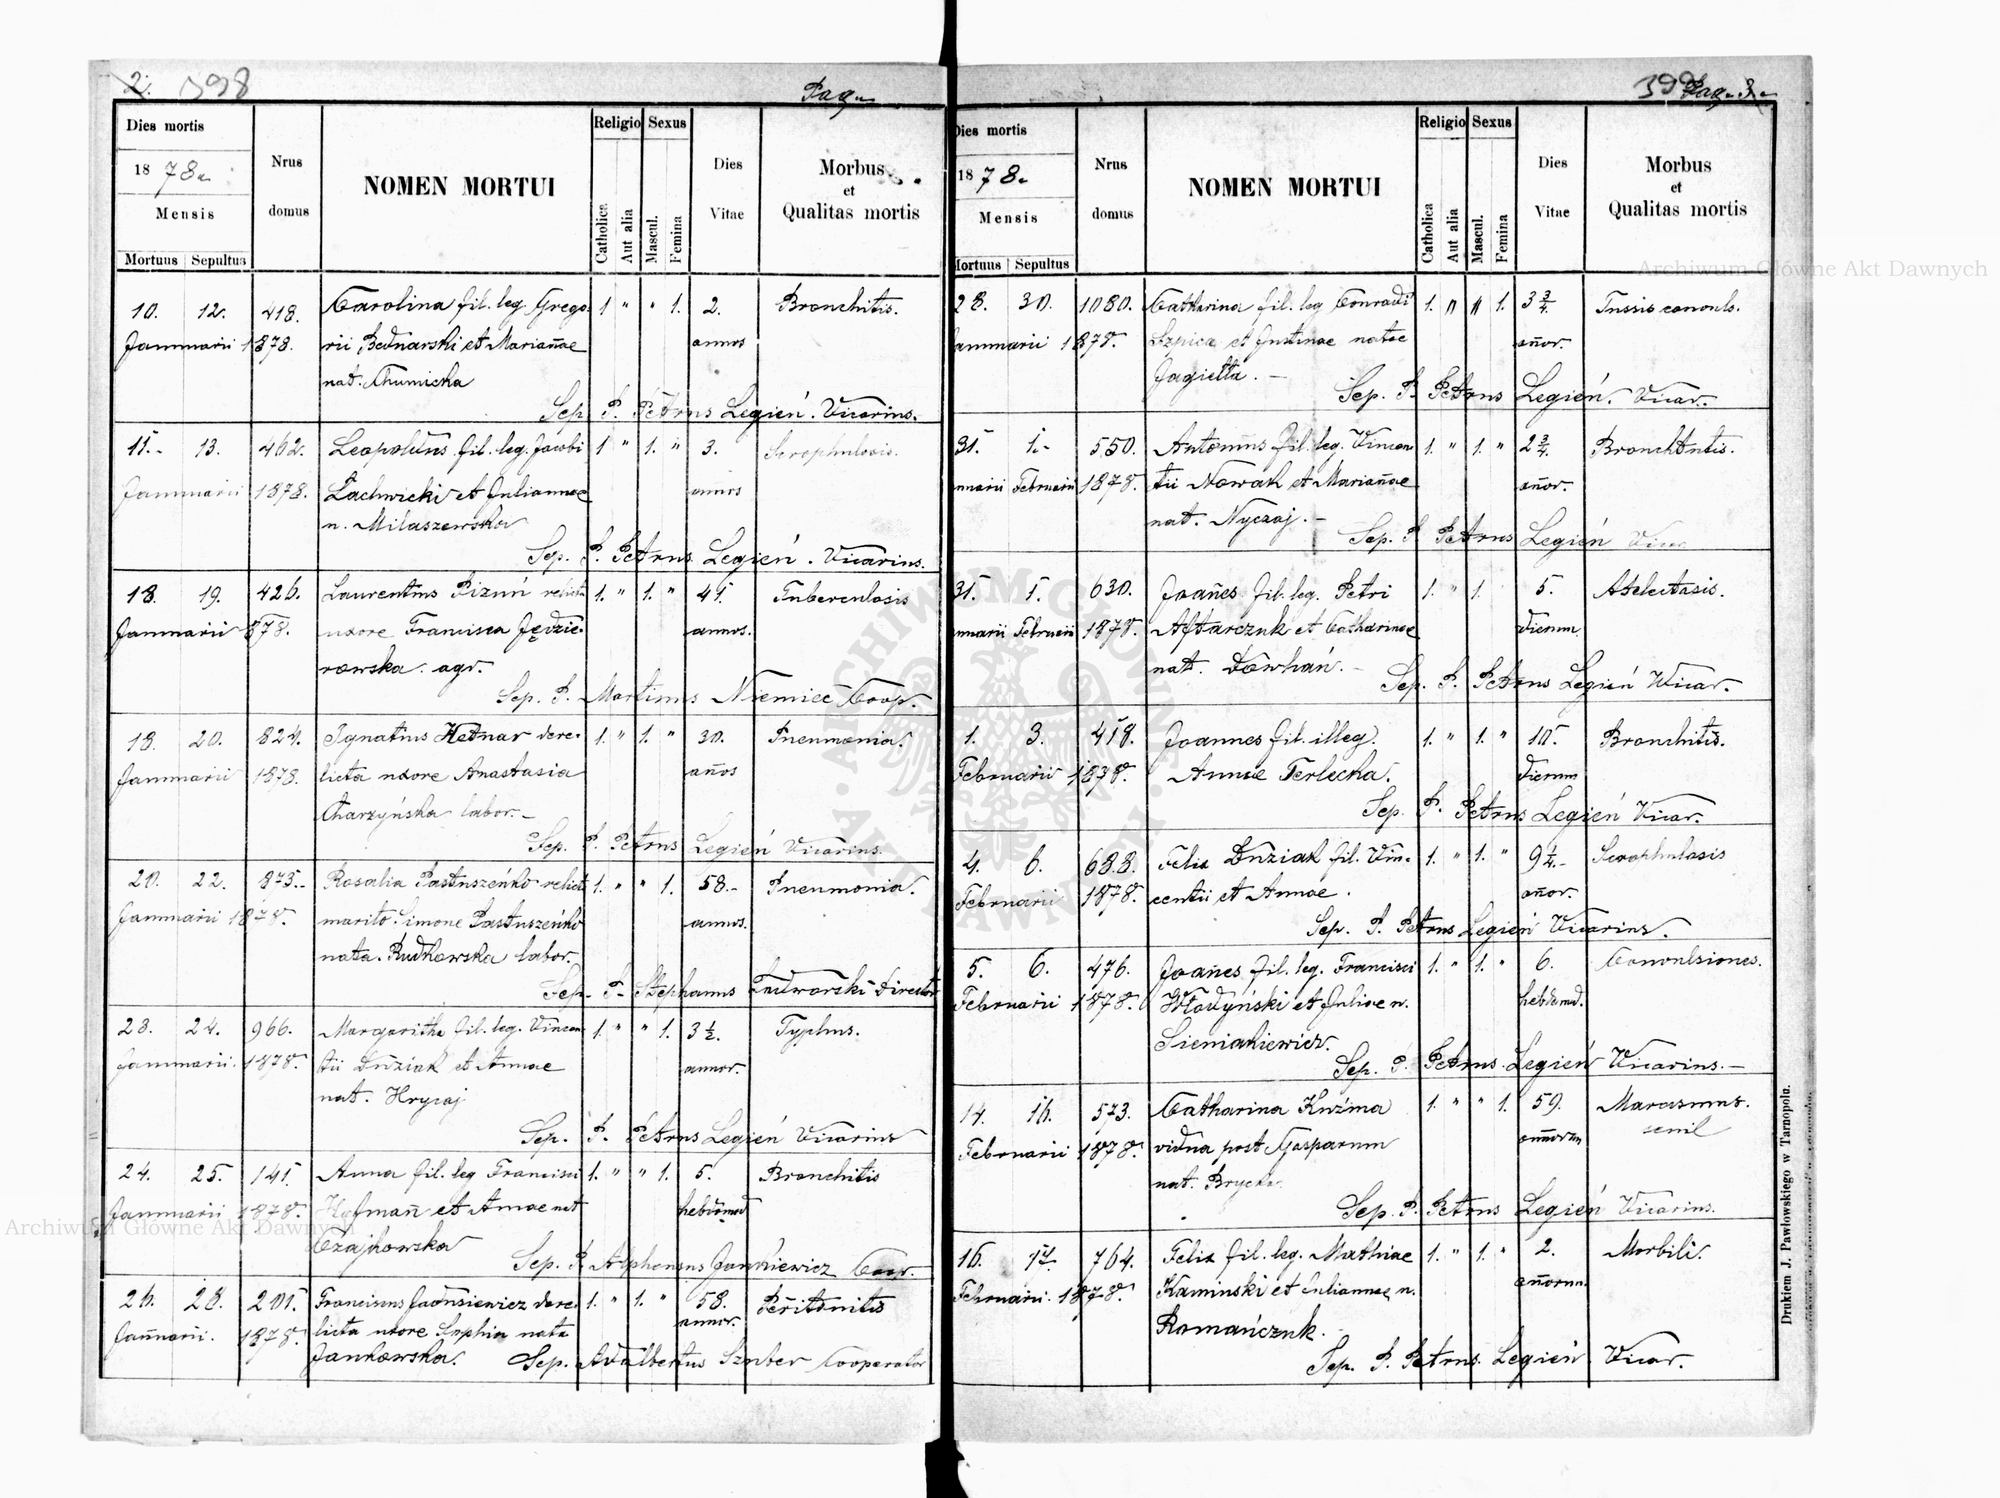 2. 398 Pag.
Dies mortis
1878.
Mensis
Mortuus Sepultus
Nrus domus
NOMEN MORTUI
Religio Sexus
Catholica Aut alia Mascul. Femina
Dies Vitae
Morbus et Qualitas mortis
10. 12. 418. Carolina fil. leg. Grego- 1 " " 1. 2. Bronchitis.
Januarii 1878. rii Bednarski et Mariañae annos
nat. Chumicka
Sep. P. Petrus Legień. Vicarius.
11. 13. 462. Leopoldus fil. leg. Jacobi 1 " 1. " 3. Scrophulosis.
Januarii 1878. Lachwicki et Juliannae annos
n. Milaszewska
Sep. P. Petrus Legień. Vicarius.
18. 19. 426. Laurentius Pizuń relicta 1. " 1. " 41. Tuberculosis
Januarii 1878. uxore Francisca Jędzie- annos.
rowska. agr.
Sep. P. Martinus Niemiec Coop.
18. 20. 824. Ignatius Hednar dere- 1. " 1. " 30. Pneumonia.
Januarii 1878. licta uxore Anastasia años
Charzyńska labor.
Sep. P. Petrus Legień Vicarius.
20. 22. 875. Rosalia Pastuszeńko relict 1. " " 1. 58. Pneumonia.
Januarii 1878. marito Simone Pastuszeńko annos.
nata. Rudkowska labor.
Sep. P. Stephanus Director
23. 24. 966. Margaritha fil. leg. Vincen- 1. " " 1. 3 ½. Typhus.
Januarii. 1878. tii Duziak et Annae annor.
nat. Hrycaj
Sep. P. Petrus Legień Vicarius
24. 25. 141. Anna fil. leg Francisci 1. " " 1. 5. Bronchitis
Januarii 1878. Hofmañ et Annae nat hebdomad
Czajkowska
Sep. P. Alphonsus Jankiewicz Coop.
26. 28. 201. Franciscus dere- 1. " 1. " 58. Peritonitis
Jañuarii. 1878. licta uxore Sophia nata annor.
Jankowska. Sep. Adalbertus Szuber Cooperator
399 Pag. 3.
Dies mortis
1878.
Mensis
Mortuus Sepultus
Nrus domus
NOMEN MORTUI
Religio Sexus
Catholica Aut alia Mascul. Femina
Dies Vitae
Morbus et Qualitas mortis
28. 30. 1080. Catharina fil. leg Conradi 1. " " 1. 3 ¾. Tussis convuls.
Januarii 1878. Szpica et Justinae natae añor.
Jagiełła.
Sep. P. Petrus Legień. Vicar.
31. 1. 550. Antonius fil. leg. Vincen- 1. " 1. " 2 ¾. Bronchitis.
Januarii Februarii 1878. tii Nowak et Mariañae añor.
nat. Nyczaj.
Sep. P Petrus Legień Vicar
31. 1. 630. Joañes fil. leg. Petri 1. " 1. 5. Atelectasis.
Januarii Februarii 1878. Aftarczuk et Catharinae dierum
nat. Dowhań.
Sep. P. Petrus Legień Vicar.
1. 3. 418. Joannes fil. illeg. 1. " 1. " 10. Bronchitis.
Februarii 1878. Annae Terlecka. dierum
Sep. P. Petrus Legień Vicar.
4. 6. 688. Felix Duziak fil. Vin- 1. " 1. " 9 ¼. Scrophulosis
Februarii 1878. centii et Annae. añor.
Sep. P. Petrus Legień Vicarius.
5. 6. 476. Joañes fil. leg. Francisci 1. " 1. " 6. Convulsiones.
Februarii 1878. Włodyński et Juliae n. hebdomad.
Sieniakiewicz.
Sep. P. Petrus Legień Vicarius.
14. 16. 573. Catharina Kuźma 1. " " 1. 59. Marasmus.
Februarii 1878. vidua post Gasparum annorum senil
nat. Brycka
Sep. P. Petrus Legień Vicarius.
16. 17. 764. Felix fil. leg. Mathiae 1. " 1. " 2. Morbili.
Februarii. 1878. Kaminski et Juliannae n. añorum.
Romańczuk.
Sep. P. Petrus Legień Vicar.
Drukiem J. Pawłowskiego w Tarnopolu.
Archiwum Główne Akt Dawnych
Archiwum Główne Akt Dawnych
ARCHIWUM GŁÓWNE AKT DAWNYCH